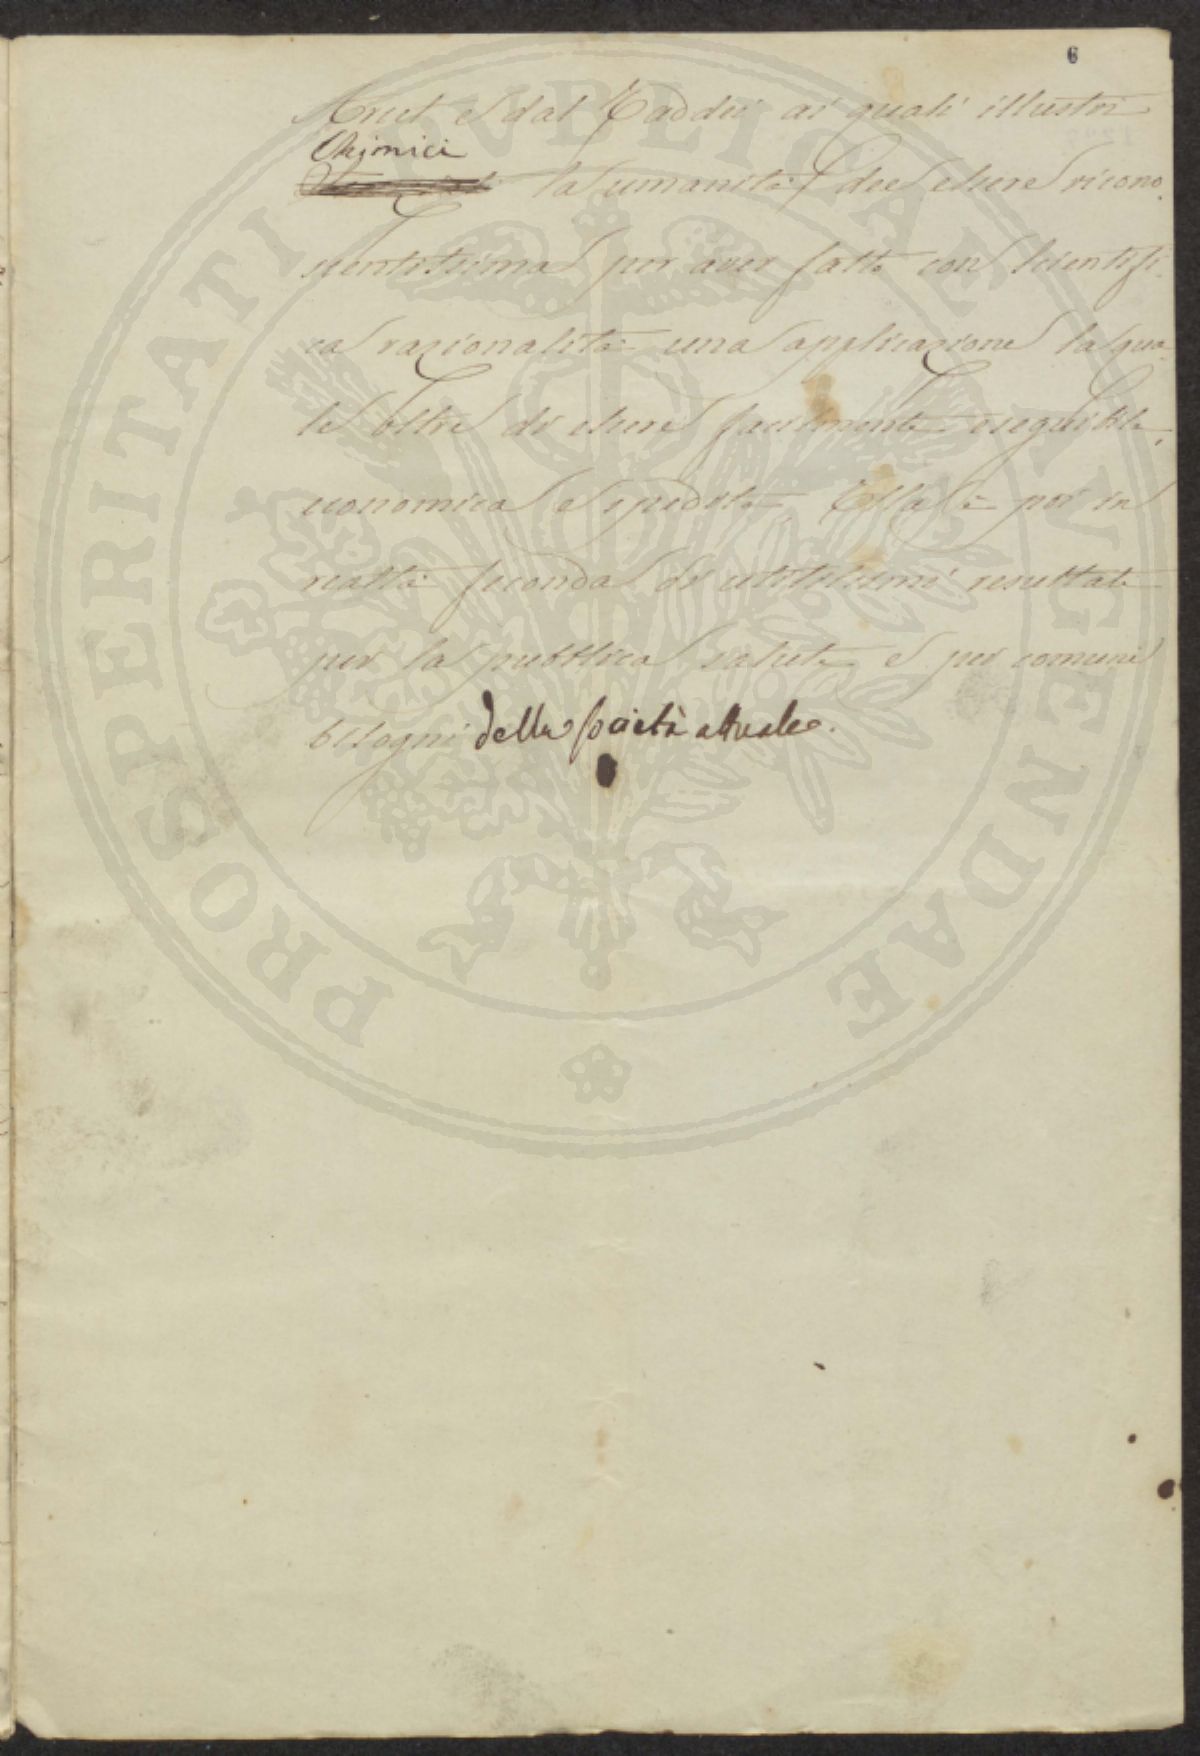 6
e dal Taddei ai quali illustri
Chimici
la umanità dee essere ricono
scentissima per aver fatto con scientifi
ca razionalità una applicazione la qua
le oltre di essere facilmente eseguibile,
economica e spedita, Ella è poi in
realtà feconda di utilissimi resultati
per la pubblica salute e per comuni
bisogni della società attuale.
PROSPERITATI PVBLICAE AVGENDAE